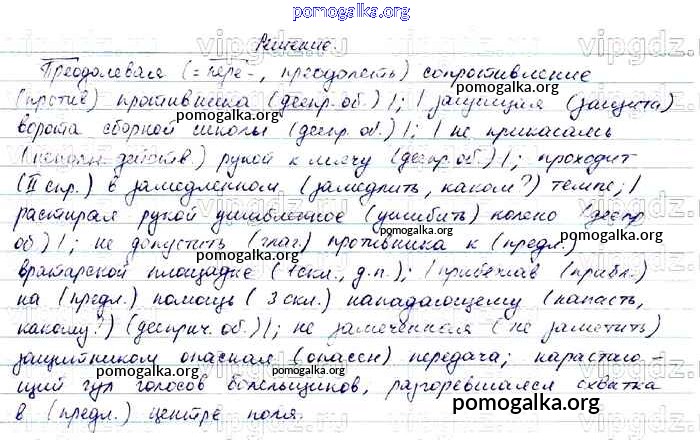 pomogalka.org
Решение.
Преодолевая (= пере-, преодолеть) сопротивление
(против) противника (деепр. об.) |; | защищая (защита)
ворота сборной школы (деепр. об.) |; | не прикасаясь
действ.) рукой к мячу (деепр. об.) |; проходит
(II спр.) в замедленном (замедлить, каком?) темпе; |
растирая рукой ушибленное (ушибить) колено (деепр.
об.) |; не допустить (глаг.) противника к (предл.)
вратарской площадке (1 скл., д.п.); | прибежав (прибл.)
на (предл.) помощь (3 скл.) нападающему (напасть,
какому?) (дееприч. об.) |; не замеченная (не заметить)
защитником опасная (опасен) передача; нарастаю-
щий гул голосов болельщиков, разгоревшаяся схватка
в (предл.) центре поля.
pomogalka.org
pomogalka.org
pomogalka.org
pomogalka.org
pomogalka.org
pomogalka.org
pomogalka.org
pomogalka.org
pomogalka.org